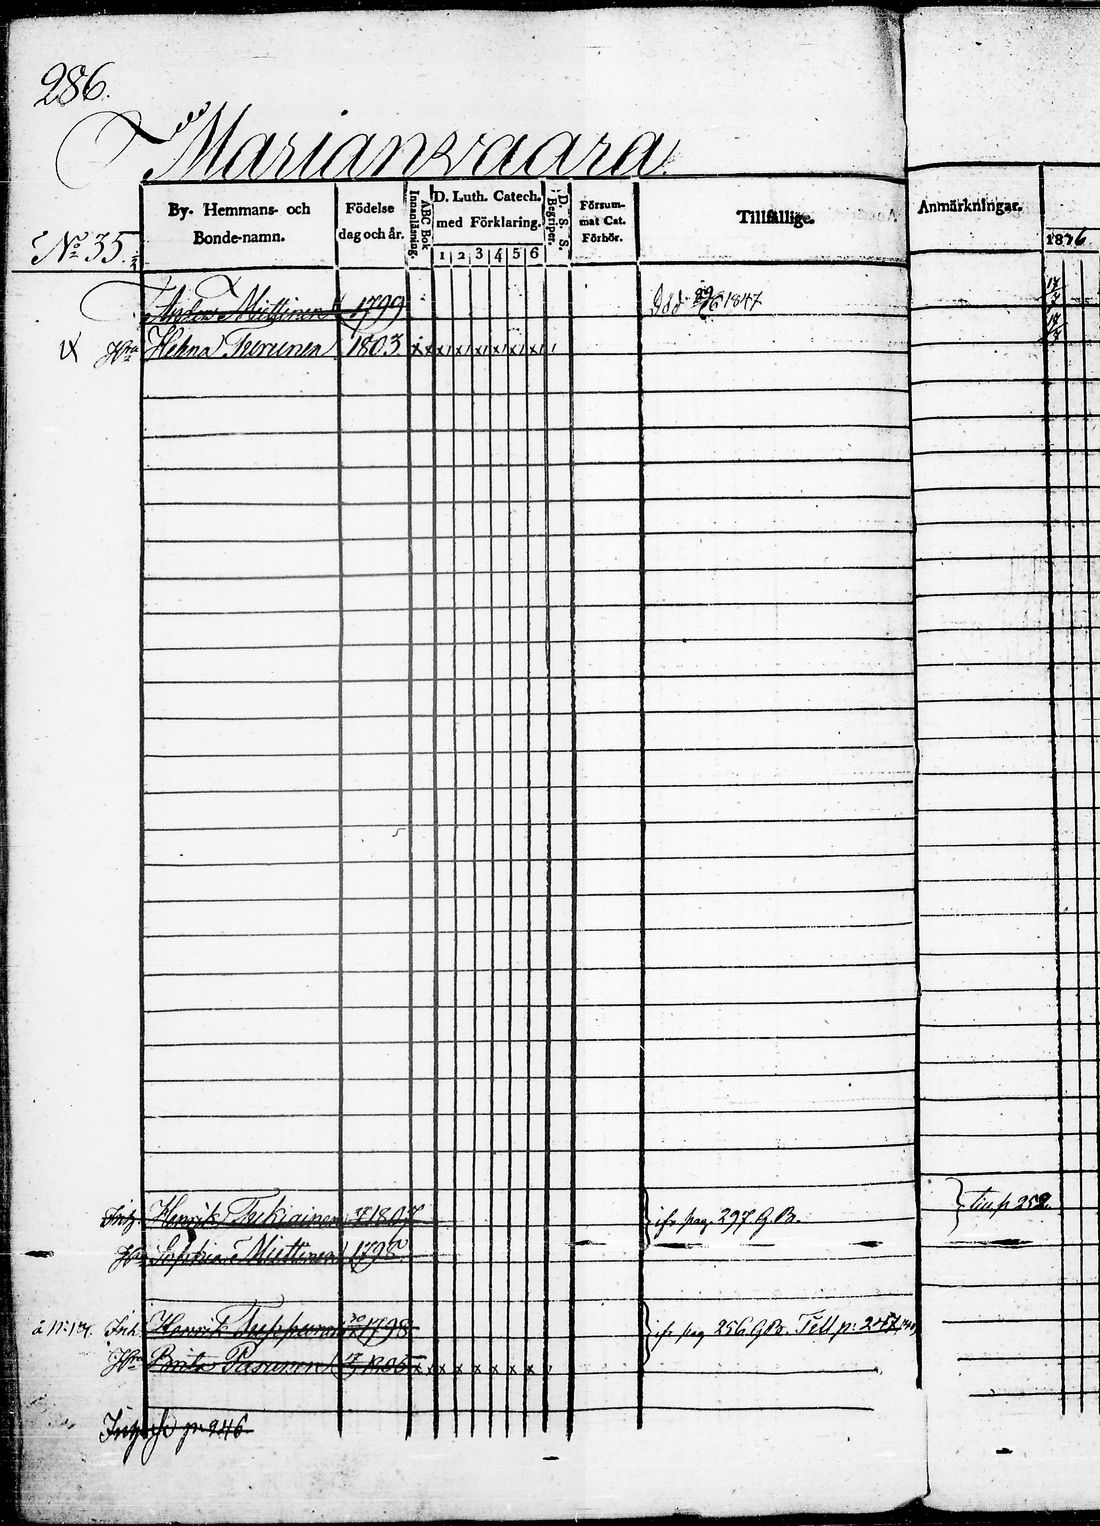 286.
Marianvaara
By. Hemmans- och Bonde-namn.
Födelse dag och år.
ABC Bok Innanläsning.
D. Luth. Catech. med Förklaring.
1 2 3 4 5 6
D. S. S. Begriper.
Försum- mat Cat. Förhör.
Tillfällige.
Anmärkningar.
1836
No 35.
Miettinen 1799 Död 29/6 1847 17/7
Hru Helena Turunen 1803 x x x x x x x x 17/7
Henrik Tukiainen 1807 pag. 297 G.B. p 252
Hru Sophia Miettinen 1798
Inh. Henrik 30 1798 pag 256 G.B. Till p:
Hru Brita Pasanen 1805 x x x x x x x x
p. 246